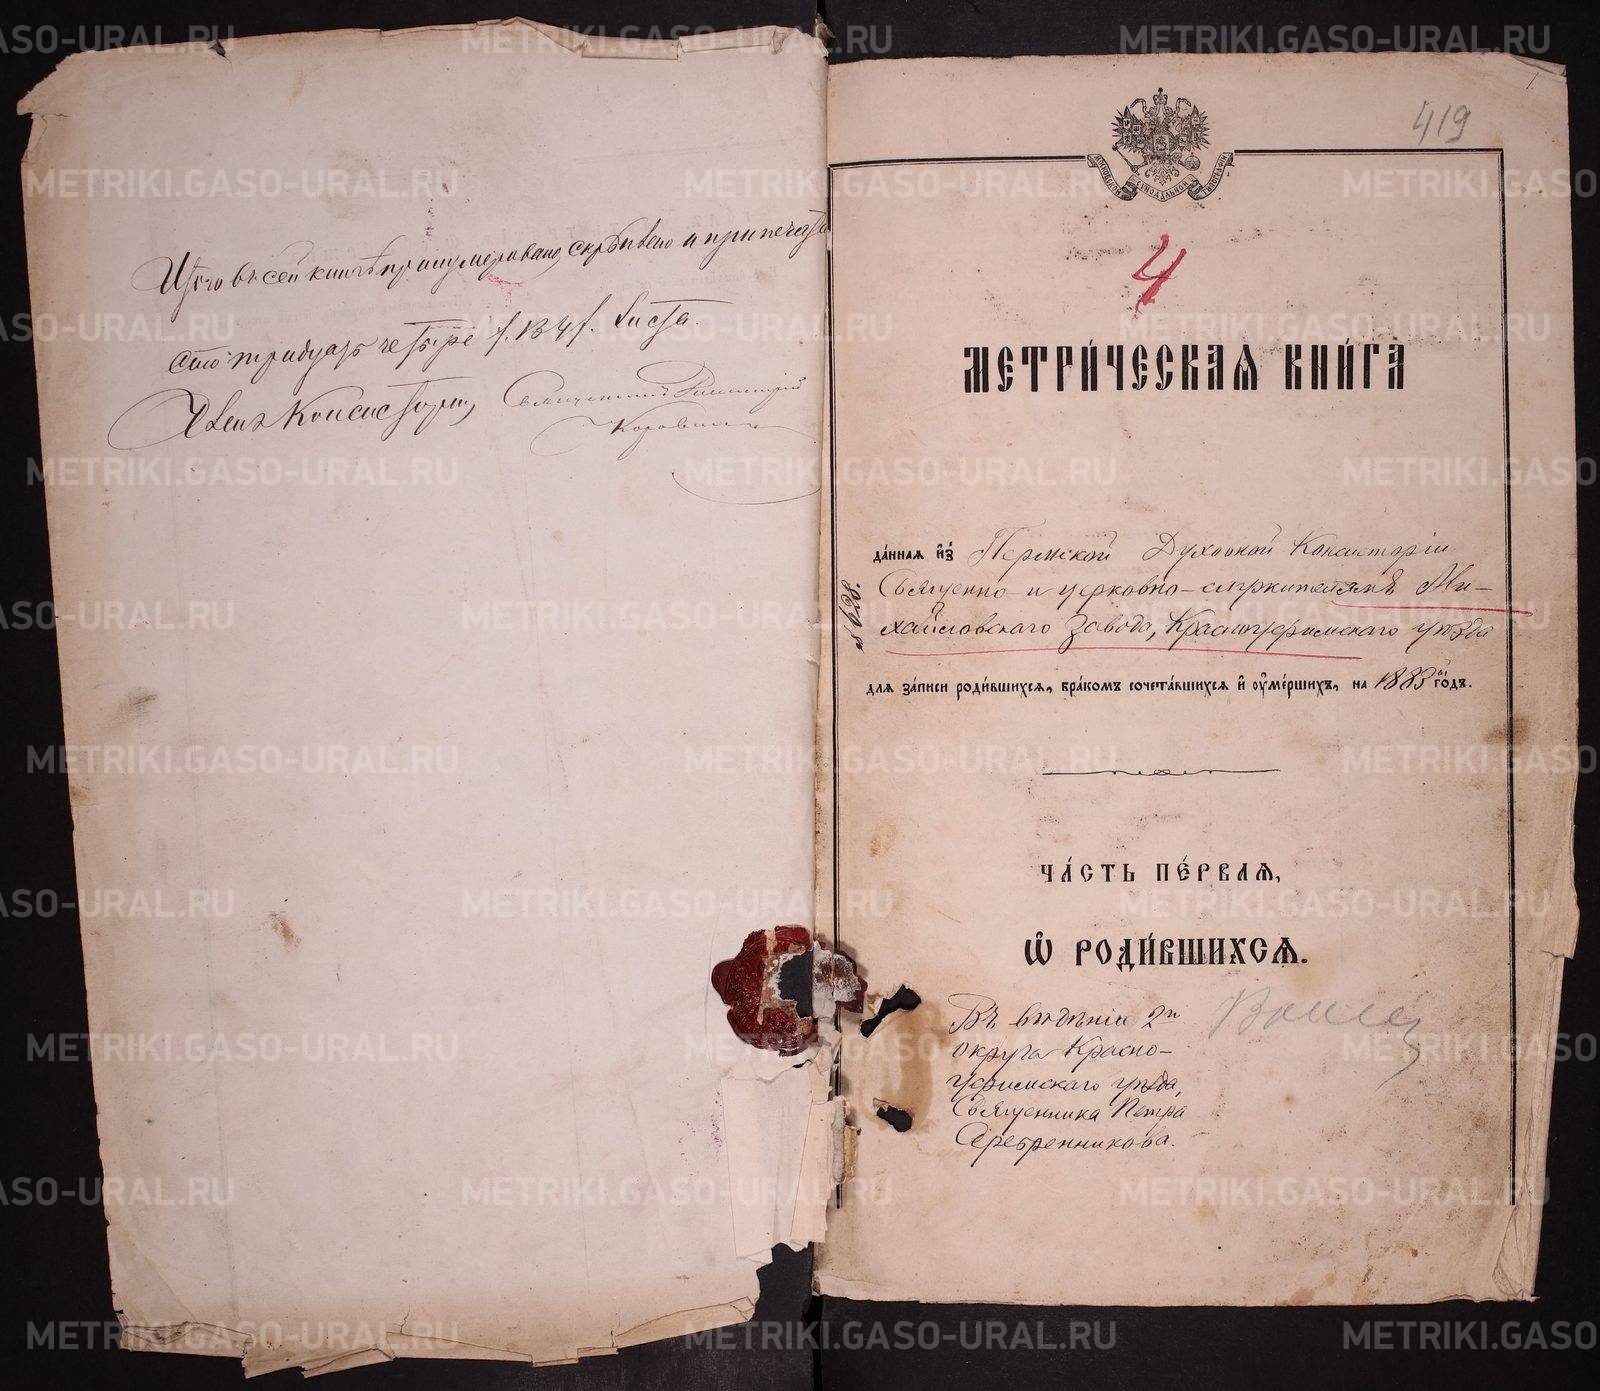 Итого въ сей книгѣ пронумеровано, скрѣплено и припечата
сто тридцать четыре /.134/. листа.
Членъ Консисторіи, Священникъ Димитрій
Коровинъ
419
МОСКОВСКОЙ СѴНОДАЛЬНОЙ ТИПОГРАФІИ
4
МЕТРИ́ЧЕСКАѦ КНИ́ГА
да́ннаѧ и҆з̾ Пермской Духовной Консисторіи
Священно- и церковно-служителямъ Ми-
хайловскаго завода, Красноуфимскаго уѣзда
для за́писи роди́вшихсѧ, бра́комъ сочета́вшихсѧ и҆ ѹ҆ме́ршихъ, на 1883й го́дъ.
ЧА́СТЬ ПЕ́РВАѦ,
Ѽ РОДИ́ВШИХСѦ.
Въ вѣдѣніи 2го
округа Красно-
уфимскаго уѣзда,
Священника Петра
Серебренникова.
METRIKI.GASO-URAL.RU